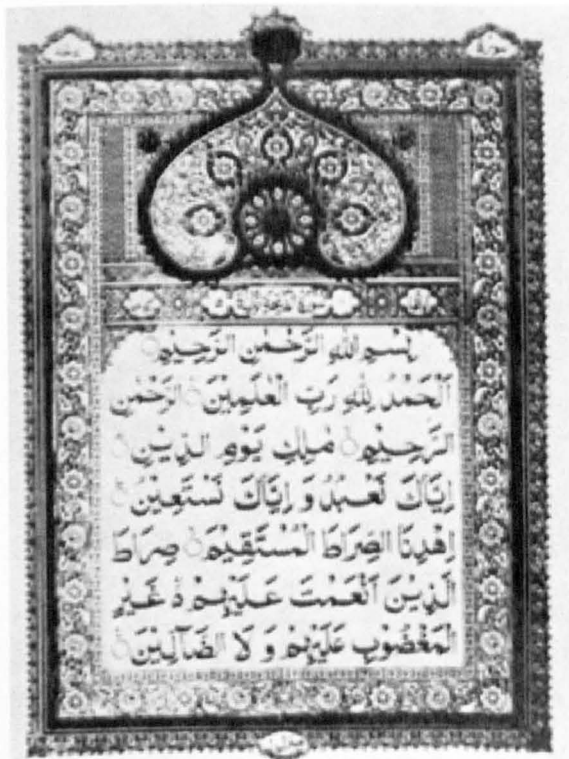 بِسْمِ اللهِ الرَّحْمٰنِ الرَّحِيْمِ
اَلْحَمْدُ لِلّٰهِ رَبِّ الْعٰلَمِيْنَ الرَّحْمٰنِ
الرَّحِيْمِ مٰلِكِ يَوْمِ الدِّيْنِ
اِيَّاكَ نَعْبُدُ وَ اِيَّاكَ نَسْتَعِيْنُ
اِهْدِنَا الصِّرَاطَ الْمُسْتَقِيْمَ صِرَاطَ
الَّذِيْنَ اَنْعَمْتَ عَلَيْهِمْ غَيْرِ
الْمَغْضُوْبِ عَلَيْهِمْ وَ لَا الضَّآلِّيْنَ